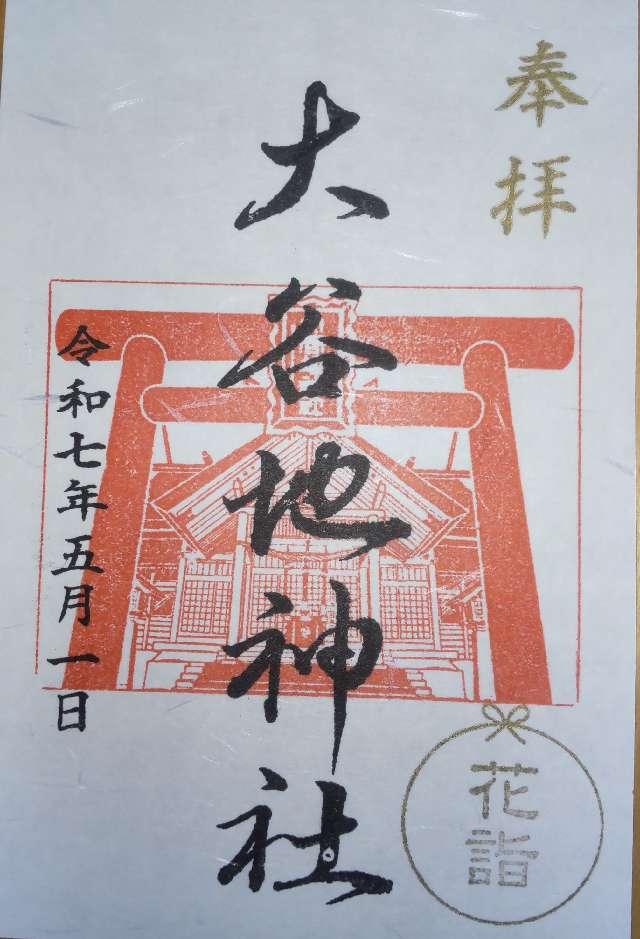 奉拝
大谷地神社
令和七年五月一日
花詣